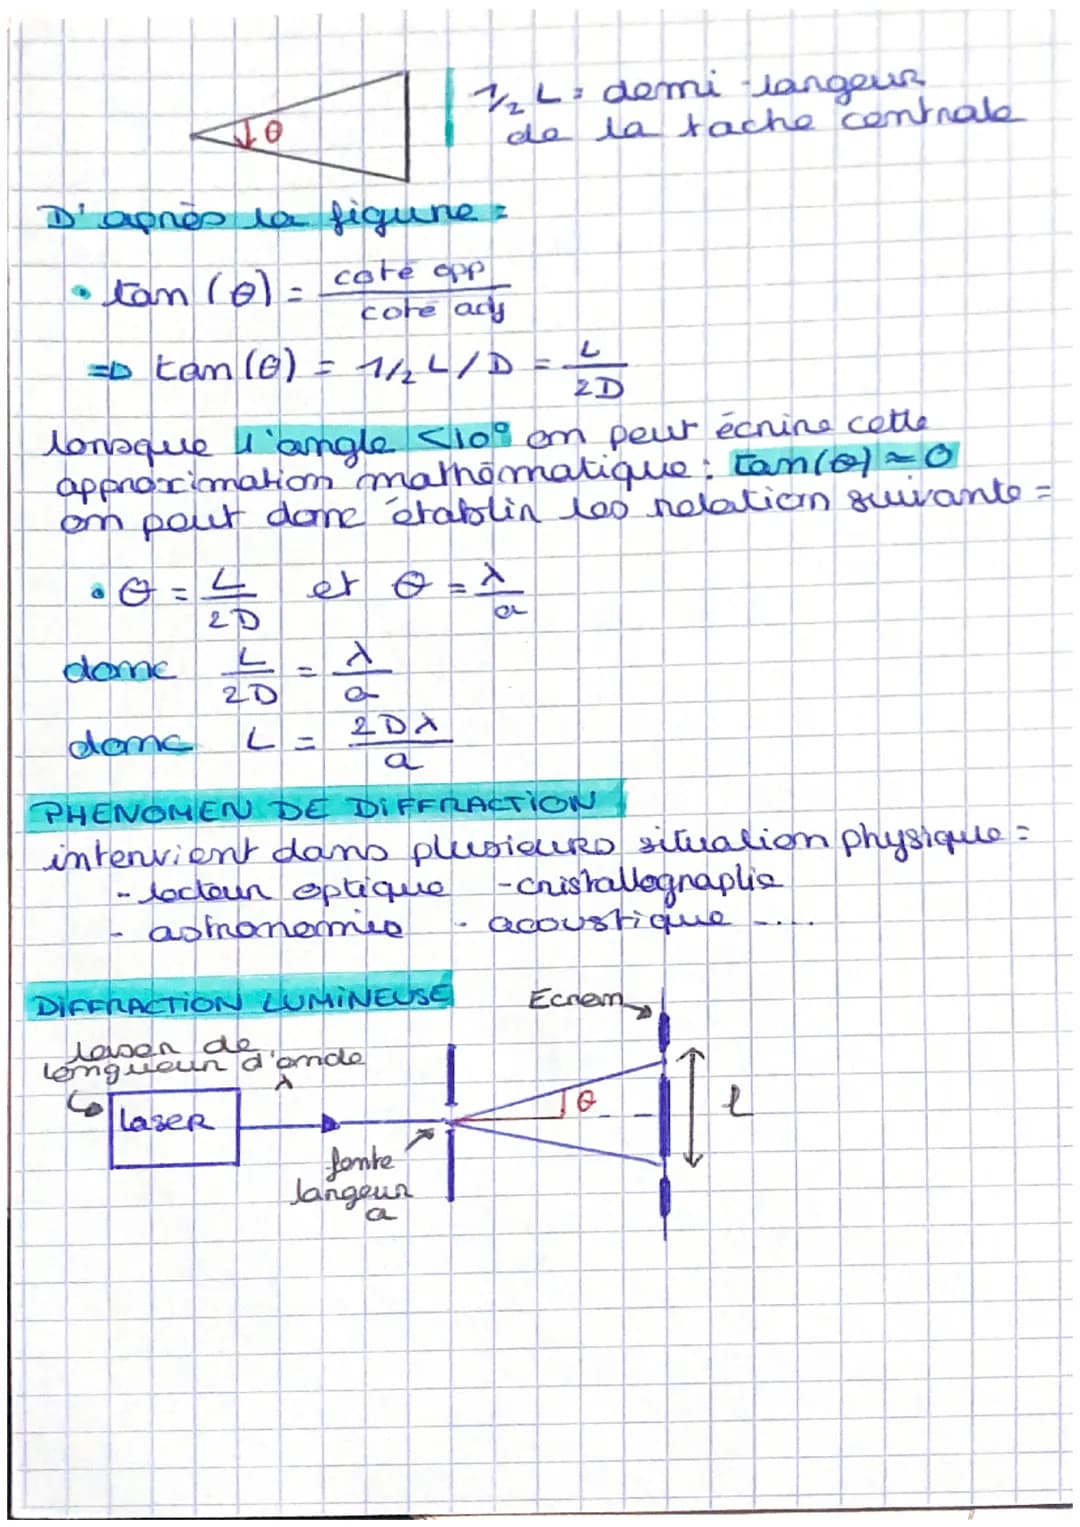 θ
1/2 L = demi-largeur
de la tache centrale
D'après la figure =
• tan (θ) = coté opp / coté adj
=> tan(θ) = 1/2 L/D = L / 2D
lorsque l'angle <10° on peut écrire cette
approximation mathématique : tan(θ) ≈ θ
on peut donc établir les relation suivante =
• θ = L / 2D et θ = λ / a
donc L / 2D = λ / a
donc L = 2Dλ / a
PHENOMEN DE DIFFRACTION
intervient dans plusieurs situation physique =
- lecteur optique - cristallographie
- astronomie - acoustique ....
DIFFRACTION LUMINEUSE
Ecran
laser de
longueur d'onde
λ
laser
θ
l
fente
largeur
a